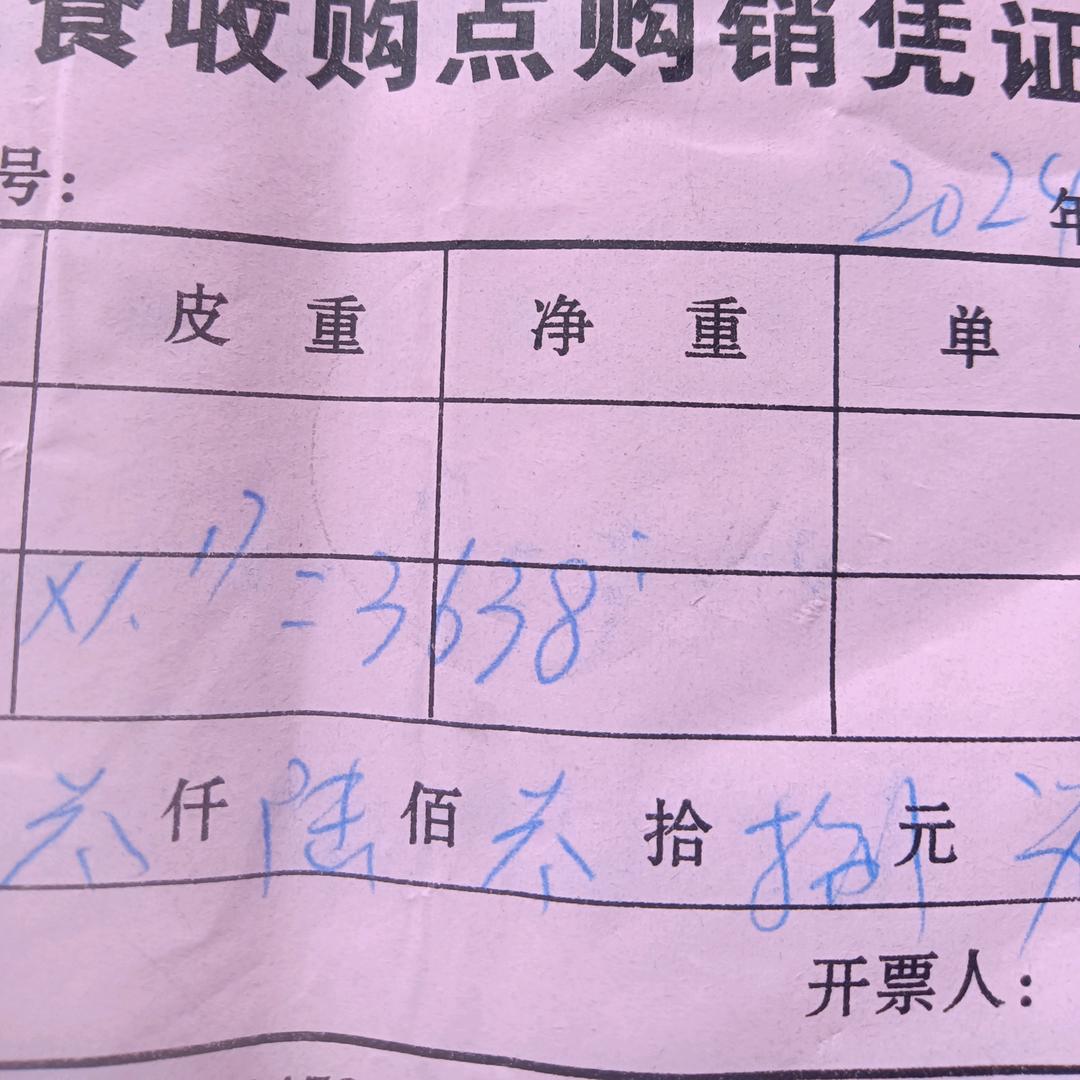 食收购点购销凭证
号: 2024年
皮 重 净 重 单
X1.17=3638
叁仟陆佰叁拾捌元
开票人: